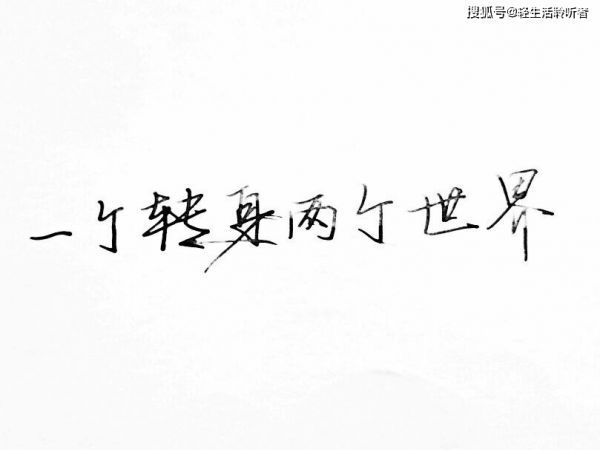 搜狐号@轻生活聆听者
一个转身两个世界